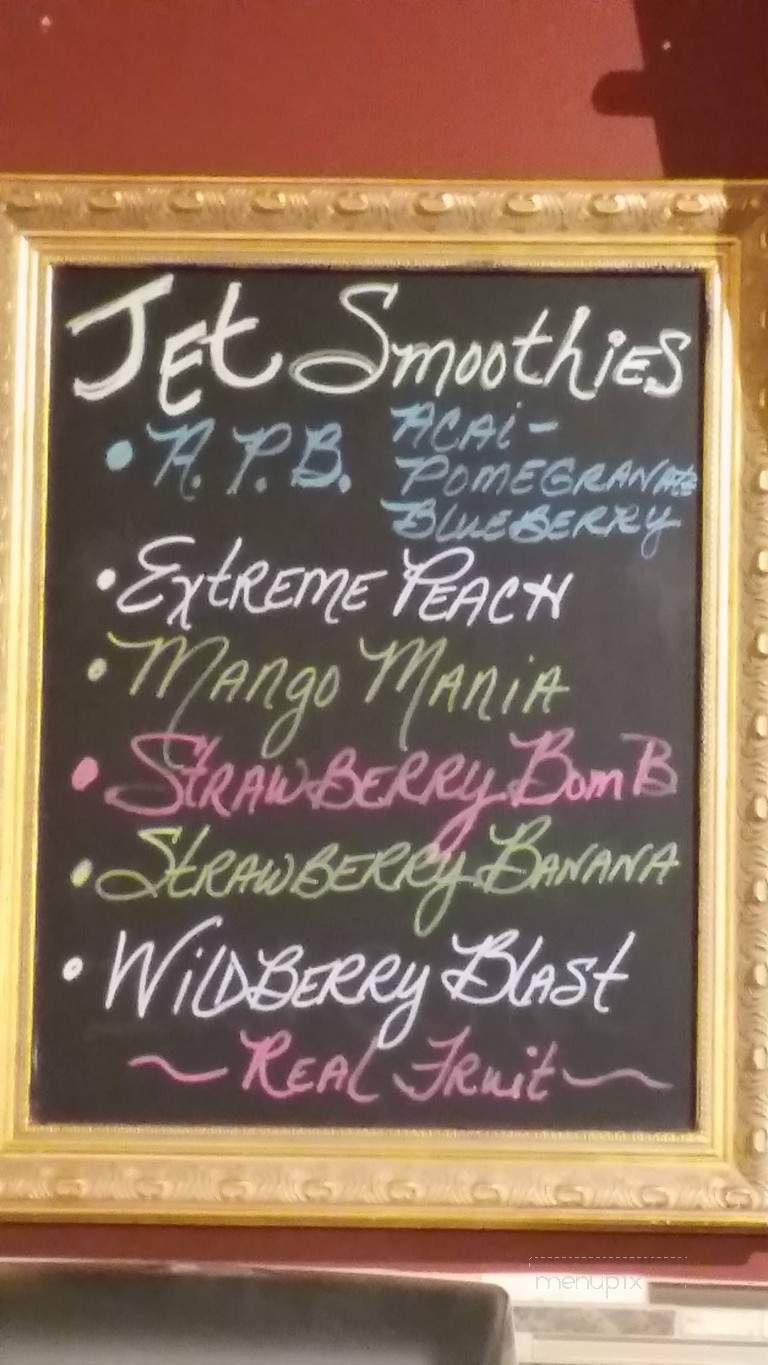 Jet Smoothies
• A.P.B. Acai-
Pomegranate
Blueberry
• Extreme Peach
• Mango Mania
• Strawberry BomB
• Strawberry Banana
• Wildberry Blast
~ Real Fruit ~
menupix